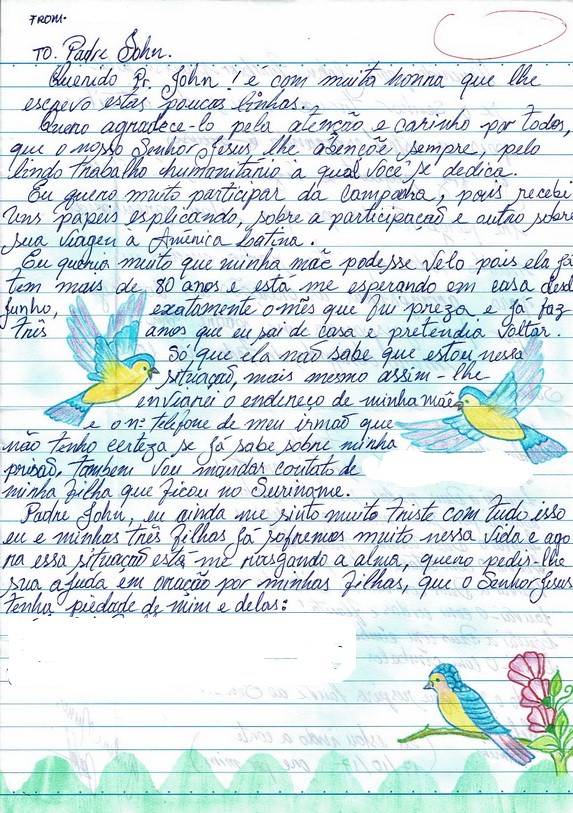 FROM:
TO. Padre John.
Querido Pr. John! é com muita honna que lhe
escrevo estas poucas linhas.
Quero agradece-lo pela atenção e carinho por todos,
que o nosso Senhor Jesus lhe abençõe sempre, pelo
lindo trabalho humanitário a qual você se dedica.
Eu quero muito participar da Campanha, pois recebi
uns papéis esplicando, sobre a participação e outro sobre
sua viagen à América Latina.
Eu queria muito que minha mãe podesse velo pois ela já
tem mais de 80 anos e está me esperando em casa desde
Junho, exatamente o mês que fui preza e já faz
três anos que eu sai de casa e pretendia voltar.
Só que ela não sabe que estou nessa
situação, mais mesmo assim-lhe
enviarei o endereço de minha mãe
e o nº telefone de meu irmão que
não tenho certeza se já sabe sobre minha
prisão, também vou mandar contato de
minha filha que ficou no Suriname.
Padre John, eu ainda me sinto muito triste com tudo isso
eu e minhas três filhas já sofremos muito nessa vida e ago
ra essa situação está me rasgando a alma, quero pedir-lhe
sua ajuda em oração por minhas filhas, que o Senhor Jesus
tenha piedade de mim e delas: